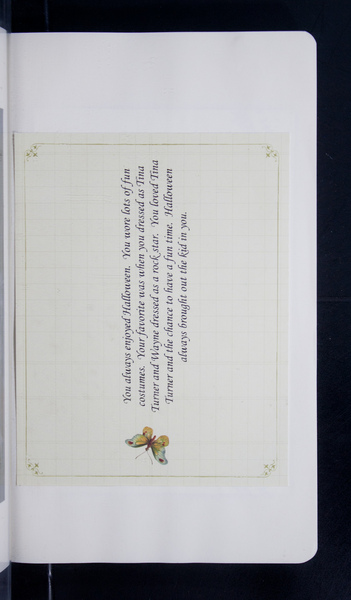 You always enjoyed Halloween. You wore lots of fun
costumes. Your favorite was when you dressed as Tina
Turner and Wayne dressed as a rock star. You loved Tina
Turner and the chance to have a fun time. Halloween
always brought out the kid in you.